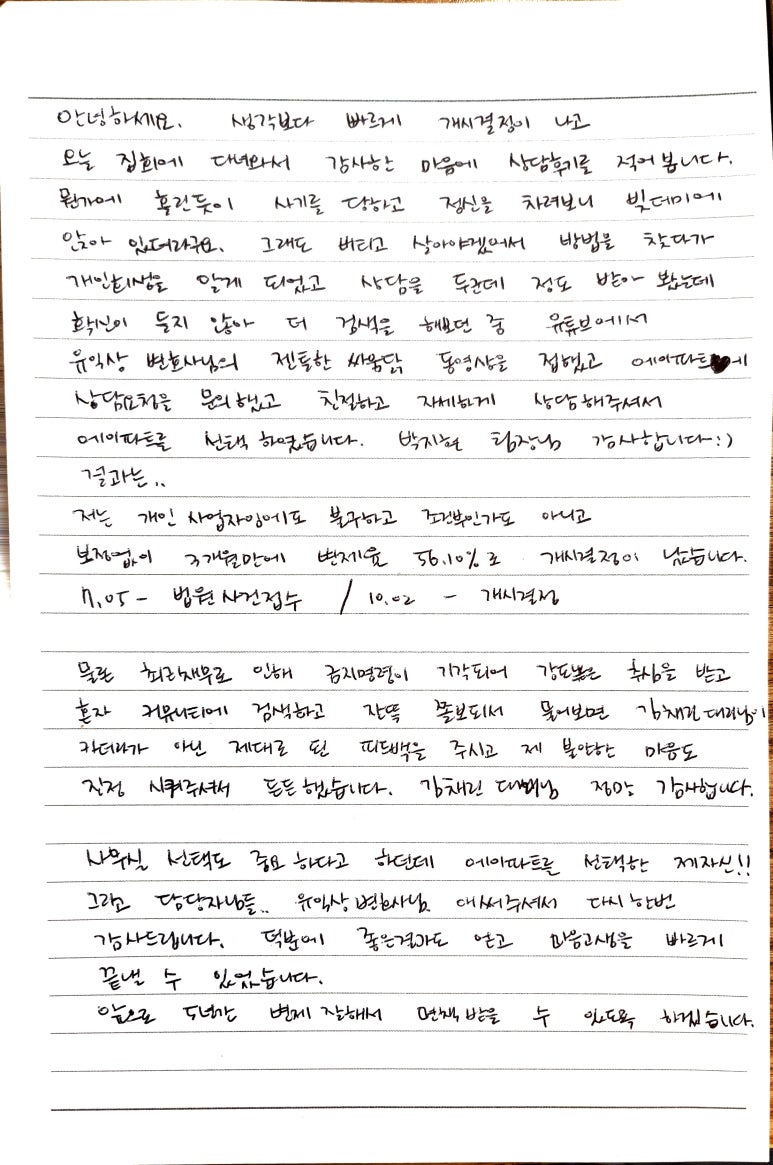 안녕하세요. 생각보다 빠르게 개시결정이 나고
오늘 집회에 다녀와서 감사한 마음에 상담후기를 적어 봅니다.
뭔가에 홀린듯이 사기를 당하고 정신을 차려보니 빚더미에
앉아 있더라구요. 그래도 버티고 살아야겠어서 방법을 찾다가
개인회생을 알게 되었고 상담을 두군데 정도 받아 봤는데
확신이 들지 않아 더 검색을 해보던 중 유튜브에서
유익상 변호사님의 젠틀한 싸움닭 동영상을 접했고 에이파트에
상담요청을 문의했고 친절하고 자세하게 상담해주셔서
에이파트를 선택 하였습니다. 박지현 팀장님 감사합니다:)
결과는..
저는 개인 사업자임에도 불구하고 조건부인가도 아니고
보정없이 3개월만에 변제율 56.10%로 개시결정이 났습니다.
7.05 - 법원 사건접수 / 10.02 - 개시결정
물론 최근채무로 인해 금지명령이 기각되어 강도높은 추심을 받고
혼자 커뮤니티에 검색하고 잔뜩 쫄보되서 물어보면 김채린 대리님이
카더라가 아닌 제대로 된 피드백을 주시고 제 불안한 마음도
진정 시켜주셔서 든든했습니다. 김채린 대리님 정말 감사합니다.
사무실 선택도 중요 하다고 하던데 에이파트를 선택한 제자신!!
그리고 담당자님들.. 유익상변호사님 애써주셔서 다시한번
감사드립니다. 덕분에 좋은결과도 얻고 마음고생을 빠르게
끝낼 수 있었습니다.
앞으로 5년간 변제 잘해서 면책 받을 수 있도록 하겠습니다.